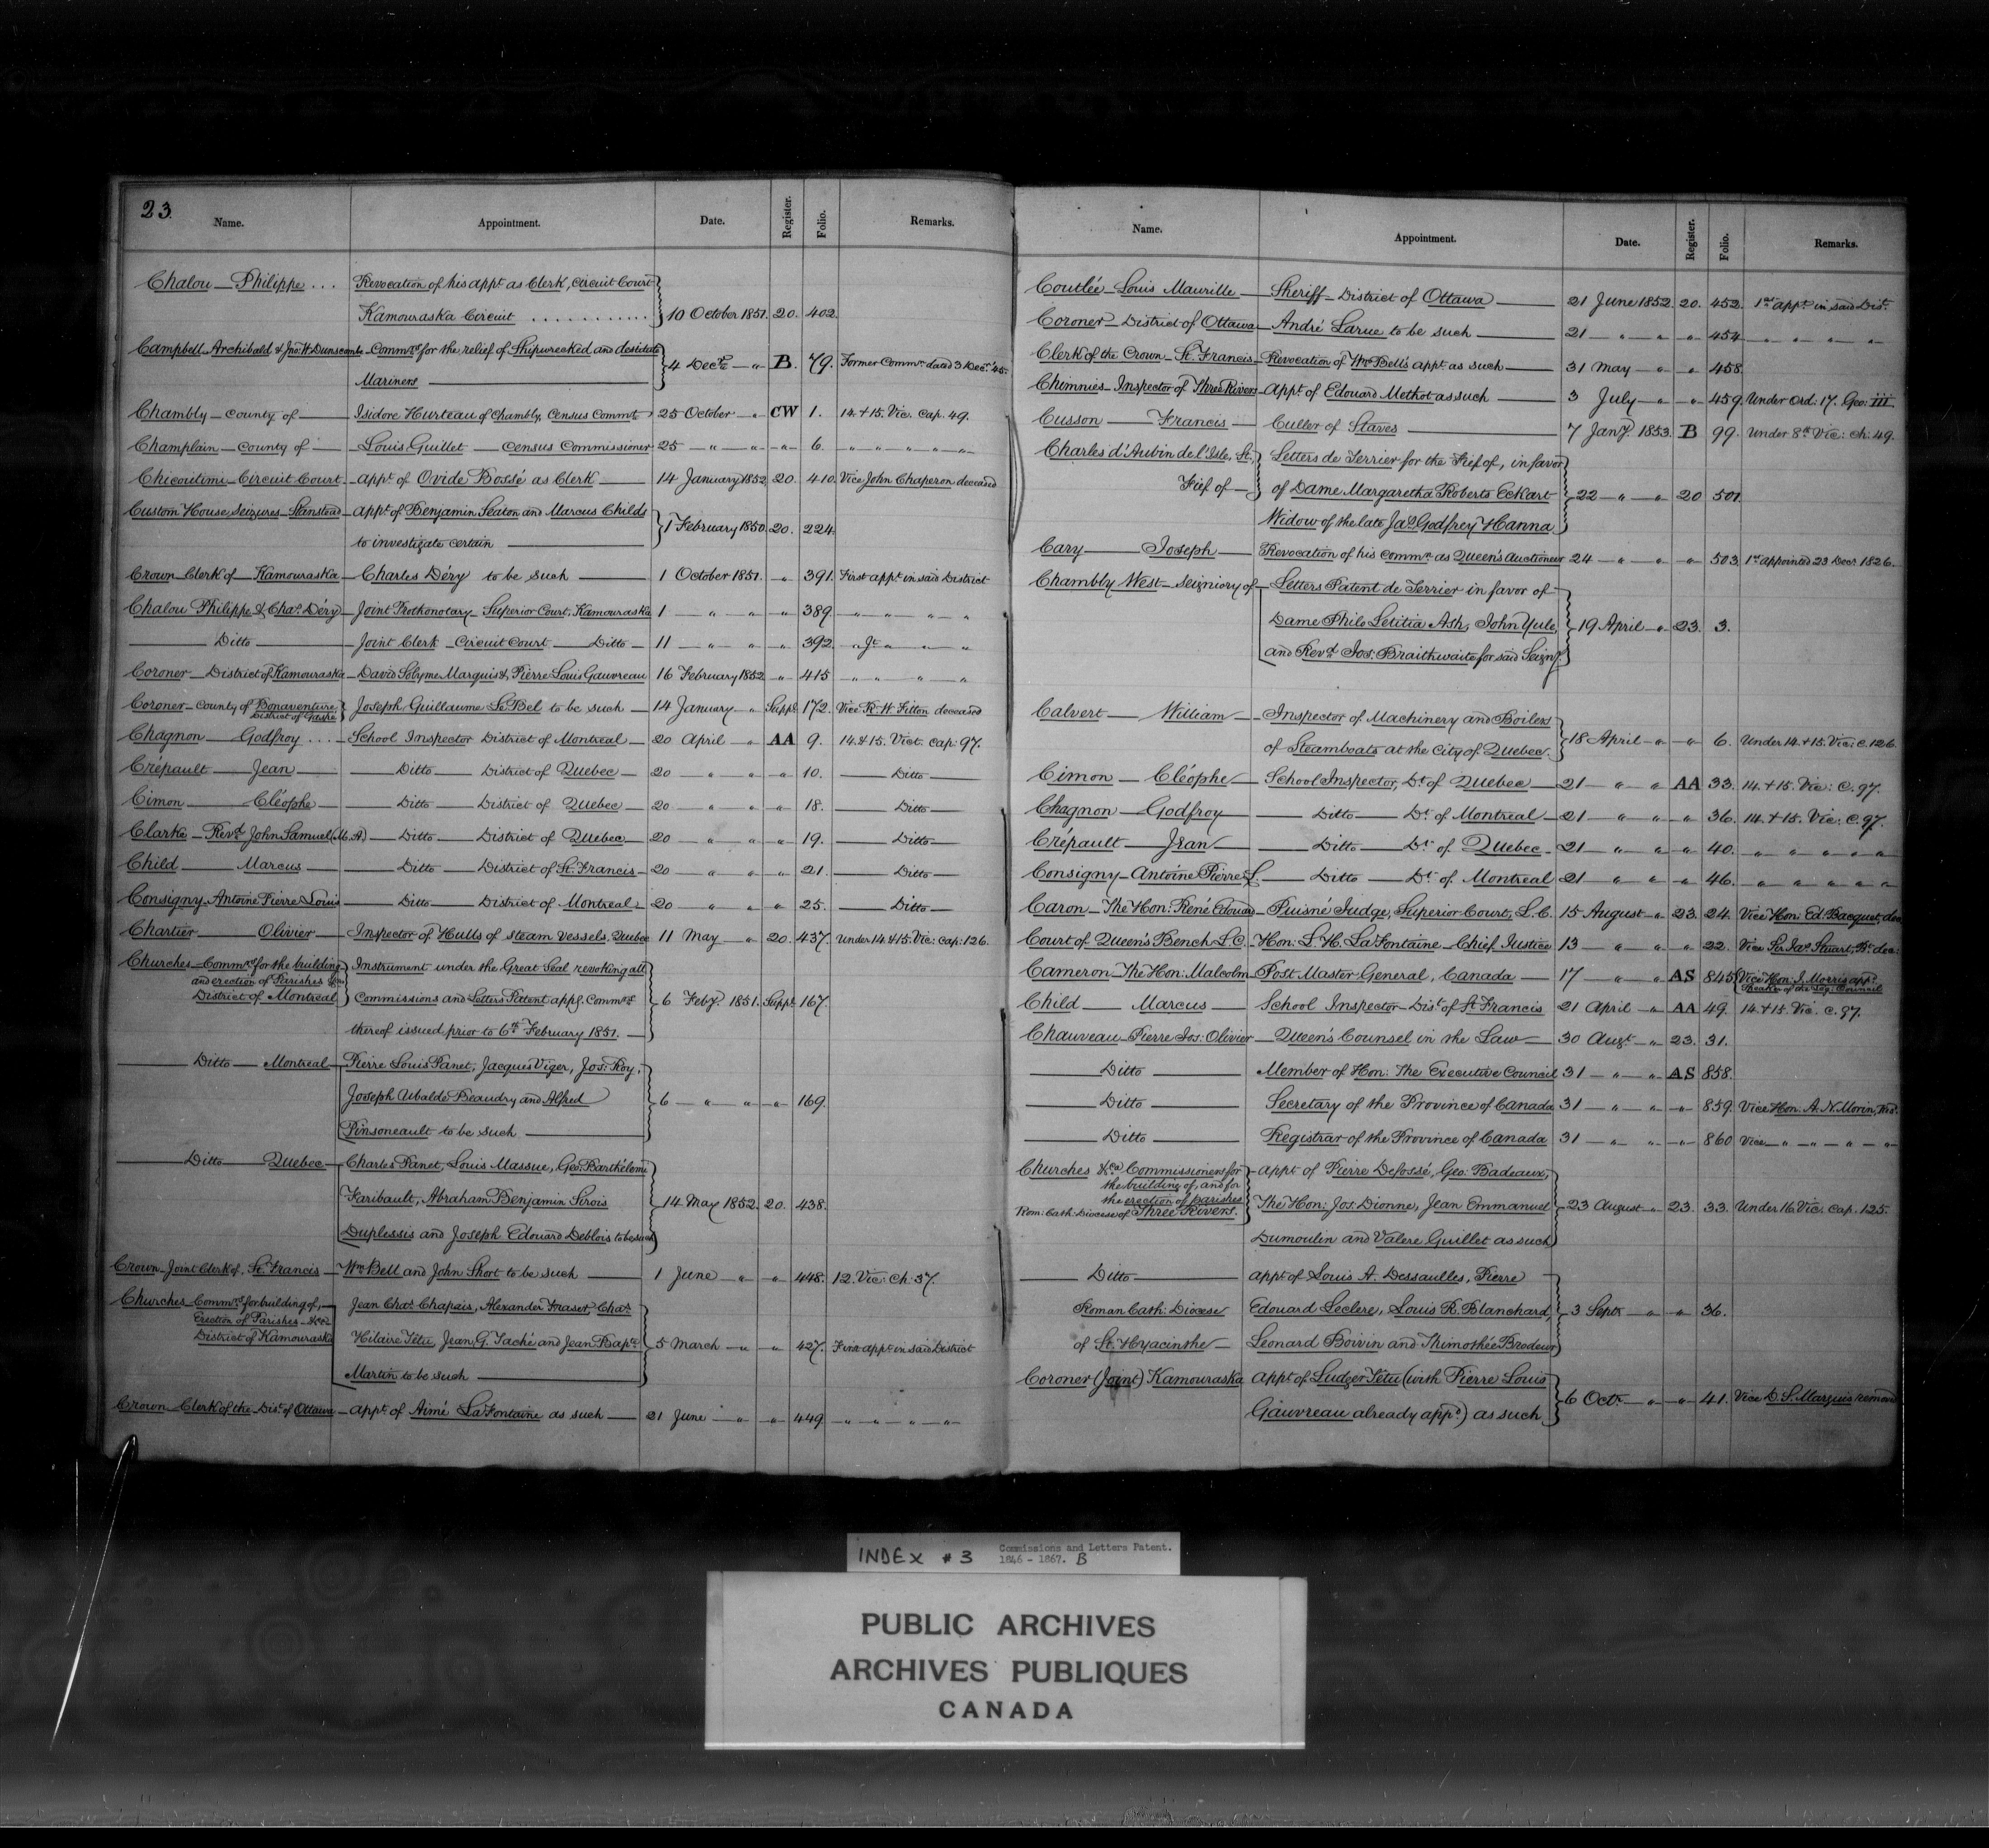 23.
Name. Appointment. Date. Register. Folio. Remarks.
Chalou Philippe ... Revocation of his appt as Clerk, Circuit Court
Kamouraska Circuit ........... 10 October 1851. 20. 402.
Campbell Archibald & Jno. W. Dunscomb Commrs for the relief of Shipwrecked and destitute
Mariners 4 Decr " B. 79. Former Commn dated 3 Decr '45.
Chambly county of Isidore Hurteau of Chambly, Census Commr 25 October " CW 1. 14 & 15. Vic. Cap. 49.
Champlain county of Louis Guillet census Commissioner 25 " " " 6. " " " " "
Chicoutimi Circuit Court appt of Ovide Bossé as Clerk 14 January 1852 20. 410. Vice John Chaperon deceased
Custom House, Seizures Stanstead appt of Benjamin Seaton and Marcus Childs
to investigate certain 1 February 1850. 20. 224.
Crown Clerk of Kamouraska Charles Déry to be such 1 October 1851. " 391. First appt in said District
Chalou Philippe & Chas. Déry Joint Prothonotary Superior Court, Kamouraska 1 " " " 389. " " " "
Ditto Joint Clerk Circuit Court Ditto 11 " " " 392. " Jt " " "
Coroner District of Kamouraska David Solyme Marquis & Pierre Louis Gauvreau 16 February 1852 " 415 " " " "
Coroner county of Bonaventure,
District of Gaspé Joseph Guillaume Le Bel to be such 14 January " Suppt 172. Vice R. W Fitton deceased
Chagnon Godfroy ... School Inspector District of Montreal 20 April " AA 9. 14 & 15. Vict. Cap: 97.
Crépault Jean Ditto District of Quebec 20 " " " 10. Ditto
Cimon Cléophe Ditto District of Quebec 20 " " " 18. Ditto
Clarke Revd John Samuel (M.A) Ditto District of Quebec 20 " " " 19. Ditto
Child Marcus Ditto District of St Francis 20 " " " 21. Ditto
Consigny Antoine Pierre Louis Ditto District of Montreal 20 " " " 25. Ditto
Chartier Olivier Inspector of Hulls of steam vessels, Quebec 11 May " 20. 437. Under 14 & 15. Vic: cap: 126.
Churches Commrs for the building Instrument under the Great Seal revoking all
and erection of Parishes &ca
District of Montreal Commissions and Letters Patent appg. Commrs 6 Feby. 1851. Suppt 167.
thereof issued prior to 6th February 1851.
Ditto Montreal Pierre Louis Panet, Jacques Viger, Jos: Roy,
Joseph Ubalde Beaudry and Alfred 6 " " " 169.
Pinsoneault to be such
Ditto Quebec Charles Panet, Louis Massue, Geo: Barthélemi
Faribault, Abraham Benjamin Sirois 14 May 1852. 20. 438.
Duplessis and Joseph Edouard Deblois to be such
Crown Joint Clerk of, St. Francis Wm Bell and John Short to be such 1 June " " 448. 12. Vic: Ch: 37.
Churches Commrs for building of, Jean Chas. Chapais, Alexander Fraser, Chas.
Erection of Parishes &ca
District of Kamouraska Hilaire Tétu Jean, G. Taché and Jean Bapte. 5 March " " 427. First appt in said District
Martin to be such
Crown Clerk of the Dist. of Ottawa appt of Aimé LaFontaine as such 21 June " " 449. " " " " "
Name. Appointment. Date. Register. Folio. Remarks.
Coutlée Louis Maurille Sheriff District of Ottawa 21 June 1852. 20. 452. 1st appt. in said Dist.
Coroner District of Ottawa André Larue to be such 21 " " " 454. " " " " "
Clerk of the Crown St. Francis Revocation of Wm Bell's appt as such 31 May " " 458.
Chimnies Inspector of Three Rivers Appt. of Edouard Methot as such 3 July " " 459. Under Ord: 17. Geo: III.
Cusson Francis Culler of Staves 7 Jany. 1853. B 99. Under 8th Vic: Ch: 49.
Charles d'Aubin de l'Isle, St. Letters de Terrier for the Fief of, in favor
Fief of of Dame Margaretha Roberts Eckart 22 " " 20 501.
Widow of the late Jas Godfrey Hanna
Cary Joseph Revocation of his commn as Queen's Auctioneer 24 " " " 503. 1st appointed 23 Decr 1826.
Chambly West seigniory of Letters Patent de Terrier in favor of
Dame Philo Letitia Ash, John Yule, 19 April " 23. 3.
and Revd Jos: Braithwaite for said Seigny.
Calvert William Inspector of Machinery and Boilers
of Steamboats at the City of Quebec. 18 April " " 6. Under 14 & 15. Vic: c. 126.
Cimon Cléophe School Inspector, Dt. of Quebec 21 " " AA 33. 14 & 15. Vic: C. 97.
Chagnon Godfroy Ditto Dt. of Montreal 21 " " " 36. 14 & 15. Vic: C. 97.
Crépault Jean Ditto Dt. of Quebec 21 " " " 40. " " " " "
Consigny Antoine Pierre L. Ditto Dt. of Montreal 21 " " " 46. " " " " "
Caron The Hon: René Edouard Puisné Judge, Superior Court, L. C. 15 August " 23. 24. Vice Hon: Ed. Bacquet, dec
Court of Queen's Bench L.C. Hon: L. H. LaFontaine Chief Justice 13 " " " 22. Vice Sir Jas Stuart, Bt dec:
Cameron The Hon: Malcolm Post Master General, Canada 17 " " AS 845. Vice Hon: J. Morris appd.
Speaker of the Leg: Council
Child Marcus School Inspector Dist. of St Francis 21 April " AA 49. 14 & 15. Vic. c. 97.
Chauveau Pierre Jos: Olivier Queen's Counsel in the Law 30 Augt " 23. 31.
Ditto Member of Hon: The Executive Council 31 " " AS 858.
Ditto Secretary of the Province of Canada 31 " " " 859. Vice Hon: A. N. Morin,
Ditto Registrar of the Province of Canada 31 " " " 860 Vice " " " " "
Churches &ca Commissioners for appt of Pierre Defossé, Geo: Badeaux,
the building of, and for
the erection of parishes The Hon: Jos. Dionne, Jean Emmanuel 23 August " 23. 33. Under 16 Vic. Cap. 125.
Rom: Cath: Diocese of Three Rivers.
Dumoulin and Valere Guillet as such
Ditto appt of Louis A. Dessaulles, Pierre
Roman Cath: Diocese Edouard Leclere, Louis R. Blanchard, 3 Septr " " 36.
of St. Hyacinthe Leonard Boivin and Thimothée Brodeur
Coroner (Joint) Kamouraska appt of Ludger Tétu (with Pierre Louis
Gauvreau already appd.) as such 6 Octr. " " 41. Vice D. S. Marquis remov
INDEX # 3 Commissions and Letters Patent.
1846 - 1867. B
PUBLIC ARCHIVES
ARCHIVES PUBLIQUES
CANADA